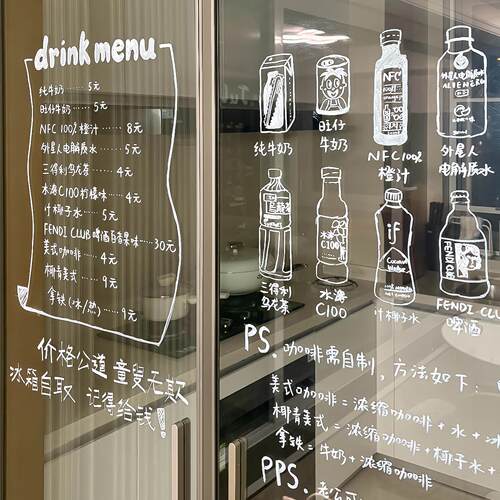 drink menu
纯牛奶 …… 5元
旺仔牛奶 …… 5元
NFC 100%橙汁 …… 8元
外星人电解质水 …… 5元
三得利乌龙茶 …… 4元
水溶C100柠檬味 …… 4元
if椰子水 …… 5元
FENDI CLUB啤酒白香果味 …… 30元
美式咖啡 …… 4元
椰青美式 …… 9元
拿铁(冰/热) …… 9元
价格公道 童叟无欺
冰箱自取 记得给钱!
纯牛奶
旺仔
牛奶
NFC
NFC100%
橙汁
外星人电解质水
ALIENERG
外星人
电解质水
三得利
乌龙茶
水溶
C100
水溶
C100
if
Coconut
Water
if椰子水
FENDI CLUB
FENDI CLUB
啤酒
PS. 咖啡需自制,方法如下:
美式咖啡=浓缩咖啡+水+冰
椰青美式=浓缩咖啡+椰子水+
拿铁=牛奶+浓缩咖啡
PPS.